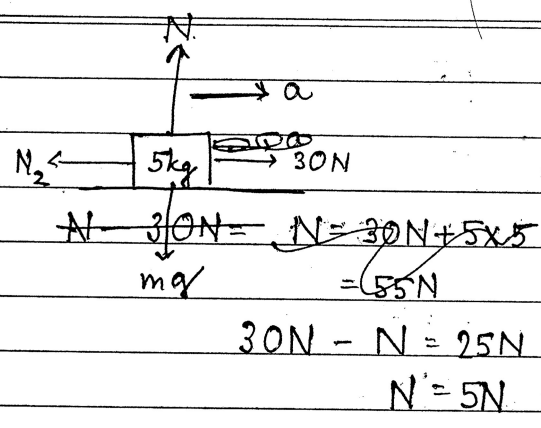 N
a
N₂ 5kg 30N
N - 30N = N = 30N + 5×5
mg = 55N
30N - N = 25N
N = 5N